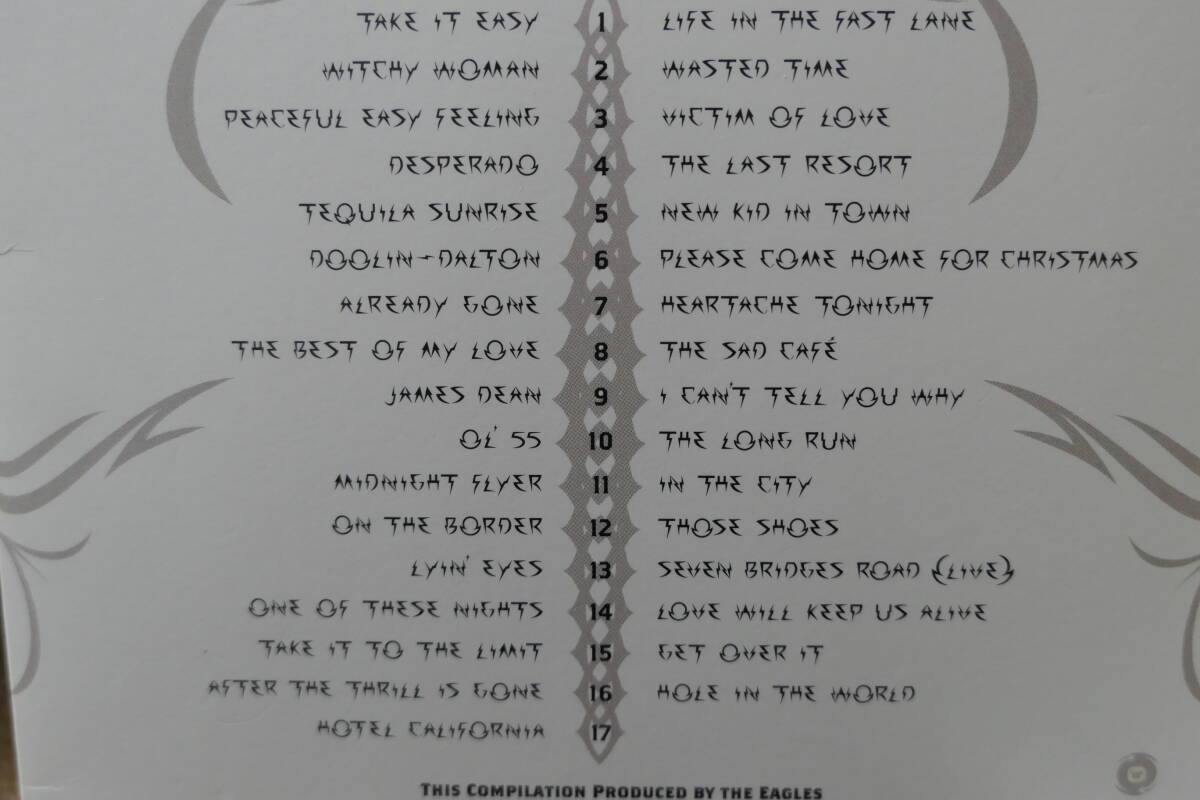 TAKE IT EASY 1 LIFE IN THE FAST LANE
WITCHY WOMAN 2 WASTED TIME
PEACEFUL EASY FEELING 3 VICTIM OF LOVE
DESPERADO 4 THE LAST RESORT
TEQUILA SUNRISE 5 NEW KID IN TOWN
DOOLIN-DALTON 6 PLEASE COME HOME FOR CHRISTMAS
ALREADY GONE 7 HEARTACHE TONIGHT
THE BEST OF MY LOVE 8 THE SAD CAFÉ
JAMES DEAN 9 I CAN'T TELL YOU WHY
OL' 55 10 THE LONG RUN
MIDNIGHT FLYER 11 IN THE CITY
ON THE BORDER 12 THOSE SHOES
LYIN' EYES 13 SEVEN BRIDGES ROAD (LIVE)
ONE OF THESE NIGHTS 14 LOVE WILL KEEP US ALIVE
TAKE IT TO THE LIMIT 15 GET OVER IT
AFTER THE THRILL IS GONE 16 HOLE IN THE WORLD
HOTEL CALIFORNIA 17
THIS COMPILATION PRODUCED BY THE EAGLES